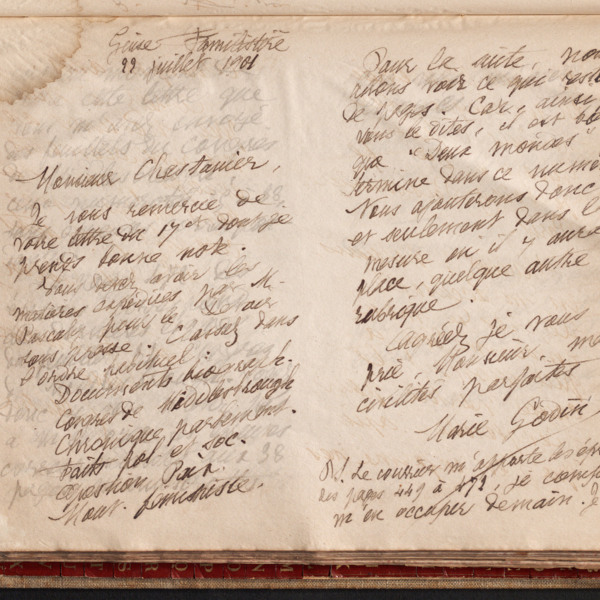 Guise Familistère
22 juillet 1901
Monsieur Chestanier,
Je vous remercie de
votre lettre du 17 ct dont je
prends bonne note.
Vous devez avoir les
matières expédiées par M.
Pascaly pour le Devoir
sous presse. Classez dans
l'ordre habituel
Documents biograph.
Congrès de Middlesbrough
Chronique parlement.
Faits pol et soc.
Question Paix.
Mouv. féministe.
Pour la suite, nous
allons voir ce qui reste
de pages. Car, ainsi
vous le dites, il est
que "Deux mondes"
termine dans ce numéro
Nous ajouterons donc
et seulement dans l
mesure où il y aura
place, quelque autre
rubrique.
Agréez je vous
prie, Monsieur, m
civilités parfaites
Marie Godin
P.S. Le courrier m'apporte les épr
des pages 449 à 472, je comp
m'en occuper demain. J